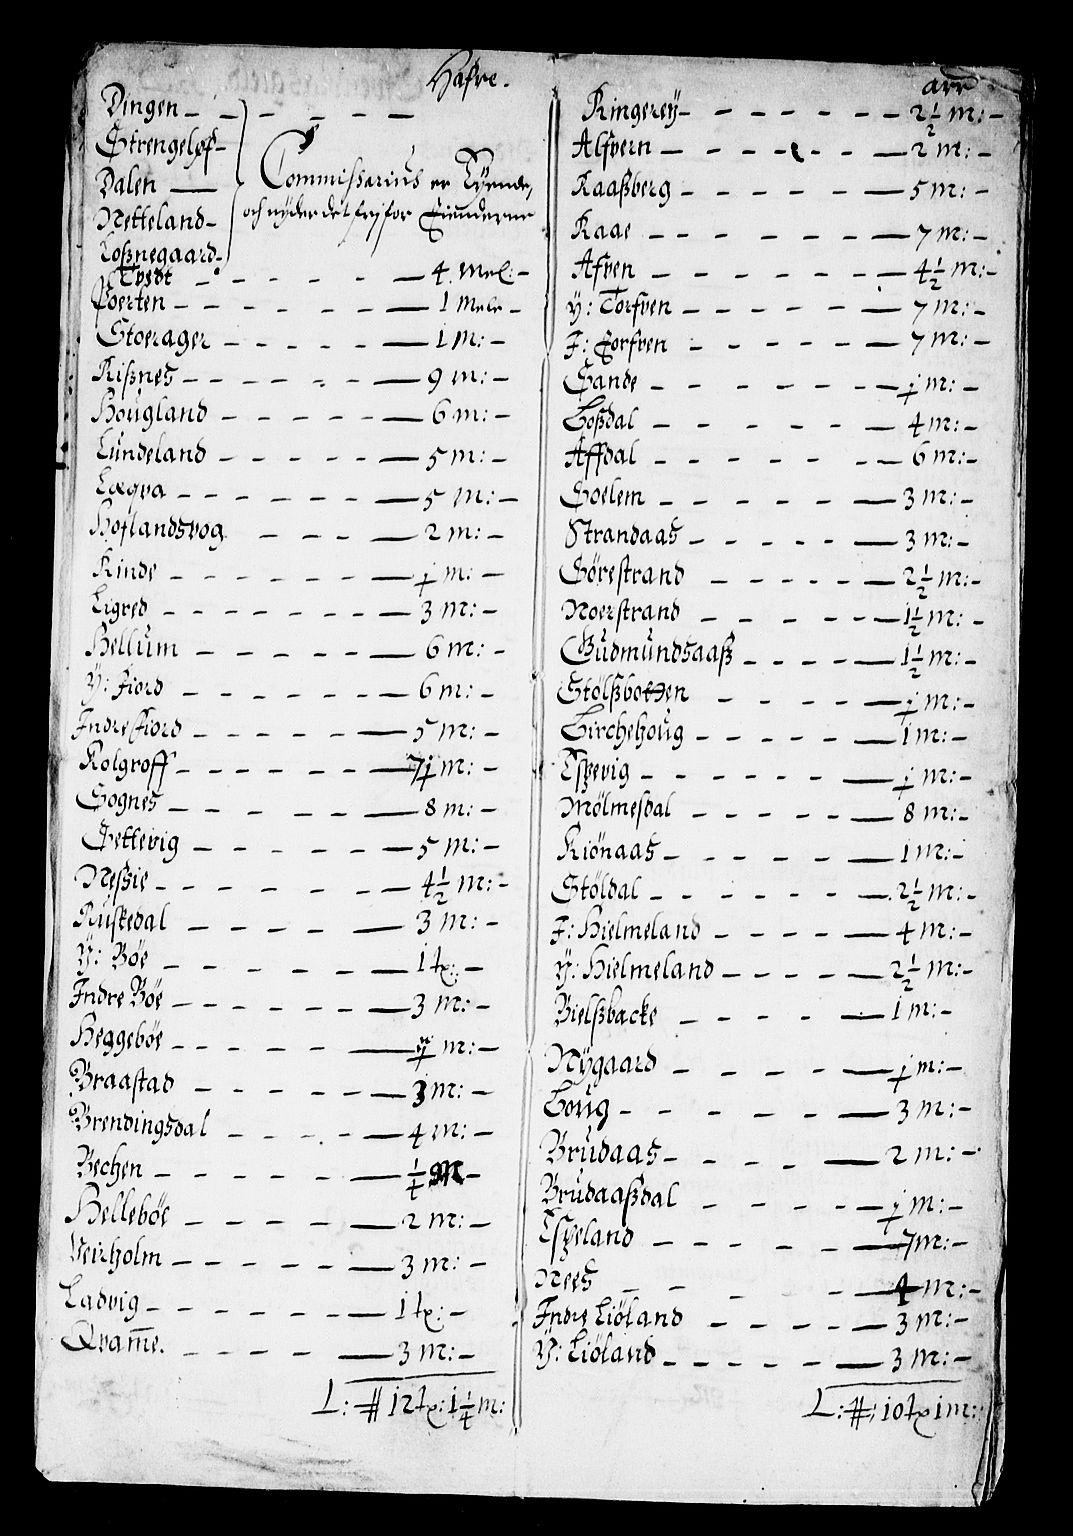 Hafre.
Dingen
Strengeløf
Dalen
Netteland
Commissarius er Tyende,
och nyder det frj for Eienderne
Toßnegaard
Tvedt 4. Mel:
Poerten 1 Mele
Stoerager 1 M:
Rißnes 9 M:
Hougland 6 M:
Lundeland 5 M:
Læqva 5 M:
Hoflandsvog 2 M:
Rinde ½ M:
Ligred 3 M:
Hellum 6 M:
Y: Fiord 6 M:
Indre Fiord 5 M:
Kolgroff 7½ M:
Sognes 8 M:
Settevig 5 M:
Neßie 4½ M:
Ruskedal 3 M:
Y: Bøe 1 tx:
Indre Bøe 3 M:
Heggebøe M:
Braastad 3 M:
Brendingsdal 4 M:
Bechen ¼ M
Hellebøe 2 M:
Veirholm 3 M:
Ladvig 1 tx:
Qvam̄e. 3 M:
L: # 12 tx: 1¼ M:
arr
Ringerey 2½ M:
Alfvern 2 M:
Raaßberg 5 M:
Raae 7 M:
Afven 4½ M:
Y: Torfven 7 M:
J: Torfven 7 M:
Sande ½ M:
Loßdal 4 M:
Affdal 6 M:
Soelem 3 M:
Strandaas 3 M:
Sörestrand 2½ M:
Noerstrand 1½ M:
Gudmundsaaß 1½ M:
Stölßbotten ½ M:
Kirchehoug 1 M:
Espevig ½ M:
Mölmesdal 8 M:
Kiönaas 1 M:
Stöldal 2½ M:
J: Hielmeland 4 M:
Y: Hielmeland 2½ M:
Bielßbacke 1 M:
Nygaard ½ M:
Houg 3 M:
Brudaas 2 M:
Brudaaßdal ½ M:
Espeland 7 M:
Nees 4 M:
Indre Liöland 3 M:
Y: Liöland 3 M:
L: #: 10 tx 1 M: